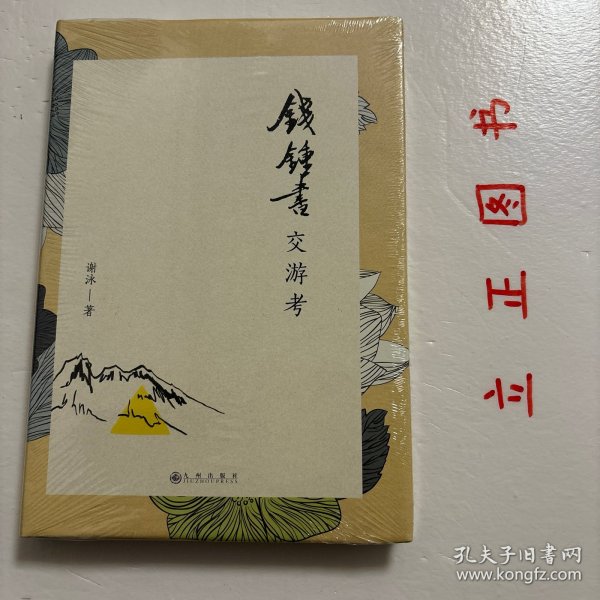 錢鍾書
交游考
谢泳一著
九州出版社
JIUZHOUPRESS
立正图书
孔夫子旧书网
www.kongfz.com